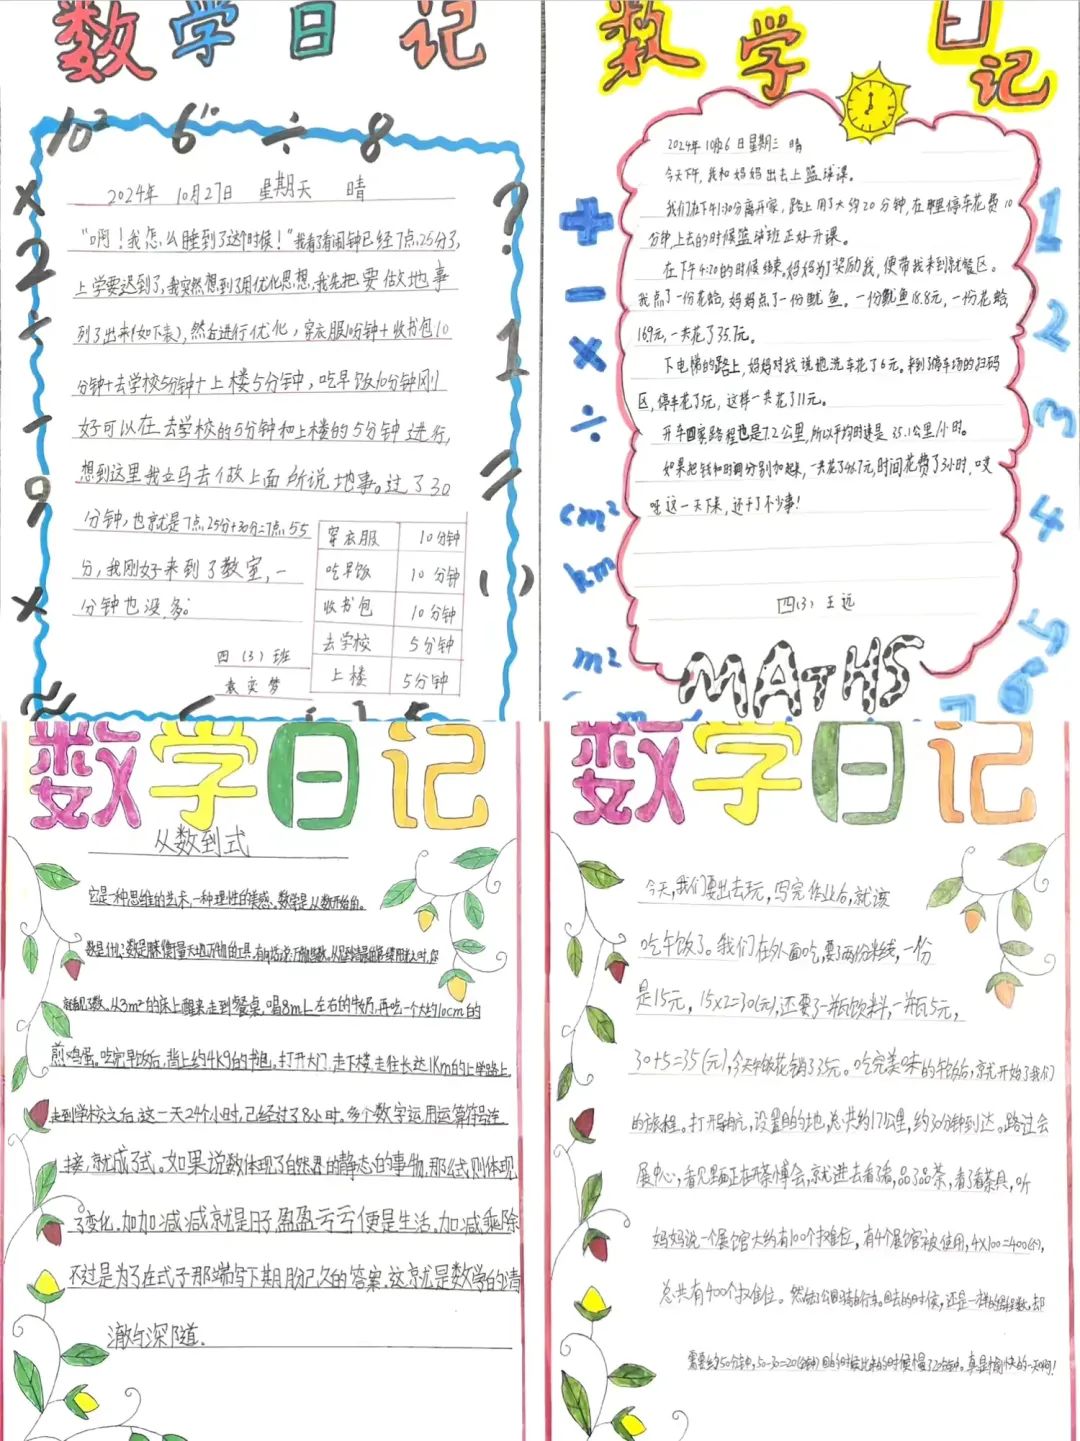 数学日记
10² 6 ÷ 8
2024年 10月27日 星期天 晴
"啊！我怎么睡到了这个时候！"我看了看闹钟已经7点25分了，
上学要迟到了，我突然想到了用优化思想，我先把要做地事
列了出来(如下表)，然后进行优化，穿衣服10分钟+收书包10
分钟+去学校5分钟+上楼5分钟，吃早饭10分钟刚
好可以在去学校的5分钟和上楼的5分钟进行，
想到这里我立马去做上面所说地事。过了30
分钟，也就是7点25分+30分=7点55
分，我刚好来到了教室，一
分钟也没多。
穿衣服 10分钟
吃早饭 10分钟
收书包 10分钟
去学校 5分钟
上楼 5分钟
四（3）班
数学日记
2024年10月6日星期三 晴
今天下午，我和妈妈出去上篮球课。
我们在下午1:30分离开家，路上用了大约20分钟，在那里停车花费10
分钟上去的时候篮球班正好开课。
在下午4:20的时候结束，妈妈为了奖励我，便带我来到就餐区。
我点了一份花蛤，妈妈点了一份鱿鱼。一份鱿鱼18.8元，一份花蛤
16.9元，一共花了35.7元。
下电梯的路上，妈妈对我说他洗车花了6元。来到停车场的扫码
区，停车花了5元，这样一共花了11元。
开车回家路程也是7.2公里，所以平均时速是35.1公里/小时。
如果把钱和时间分别加起来，一共花了46.7元，时间花费了3小时，哎
呀这一天下来，还干了不少事！
四（3） 王远
MATHS
cm²
km
m²
1
2
3
4
5
6
数学日记
从数到式
它是一种思维的艺术，一种理性的美感。数学是从数开始的。
数是什么？数是
就有了数。从3m²的床上醒来，走到餐桌，喝8mL左右的牛奶，再吃一个大约10cm的
煎鸡蛋。吃完早饭后，背上约4kg的书包，打开大门，走下楼，走往长达1km的上学路上，
走到学校之后，这一天24个小时，已经过了8小时。多个数字运用运算符号连
接，就成了式。如果说数体现了自然界的静态的事物，那么式则体现
了变化。加加减减就是日子，盈盈亏亏便是生活。加减乘除
不过是为了在式子那端写下期盼已久的答案。这就是数学的清
澈与深隧。
数学日记
今天，我们要出去玩，写完作业后，就该
吃午饭了。我们在外面吃，要了两份米线，一份
是15元，15×2=30(元)，还要了一瓶饮料，一瓶5元，
30+5=35(元)，今天午饭花销了35元。吃完美味的午饭后，就开始了我们
的旅程。打开导航，设置目的地，总共约17公里，约30分钟到达。路过会
展中心，看见里面正在开茶博会，就进去看了看，品了品茶，看了看茶具，听
妈妈说一个展馆大约有100个摊位，有4个展馆被使用，4×100=400(个)，
总共有400个摊位。然后
需要约50分钟，50-30=20(分钟)